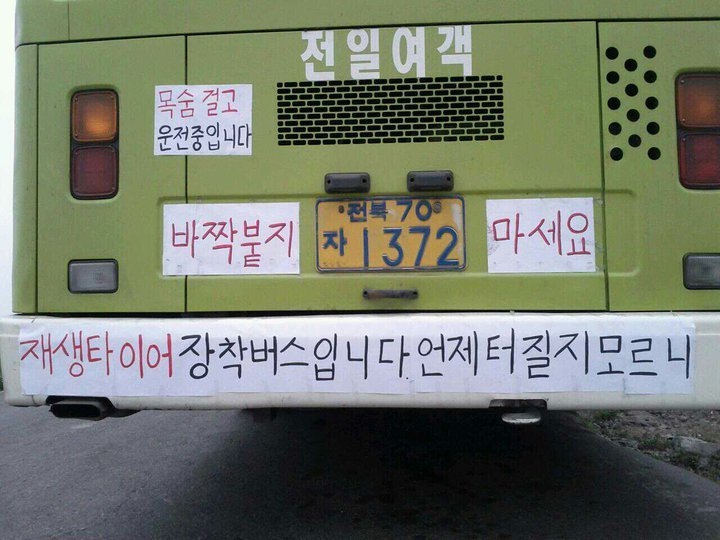 전일여객
목숨 걸고
운전중입니다
전북 70
자 1372
재생타이어 장착버스입니다 언제 터질지 모르니
바짝붙지
마세요